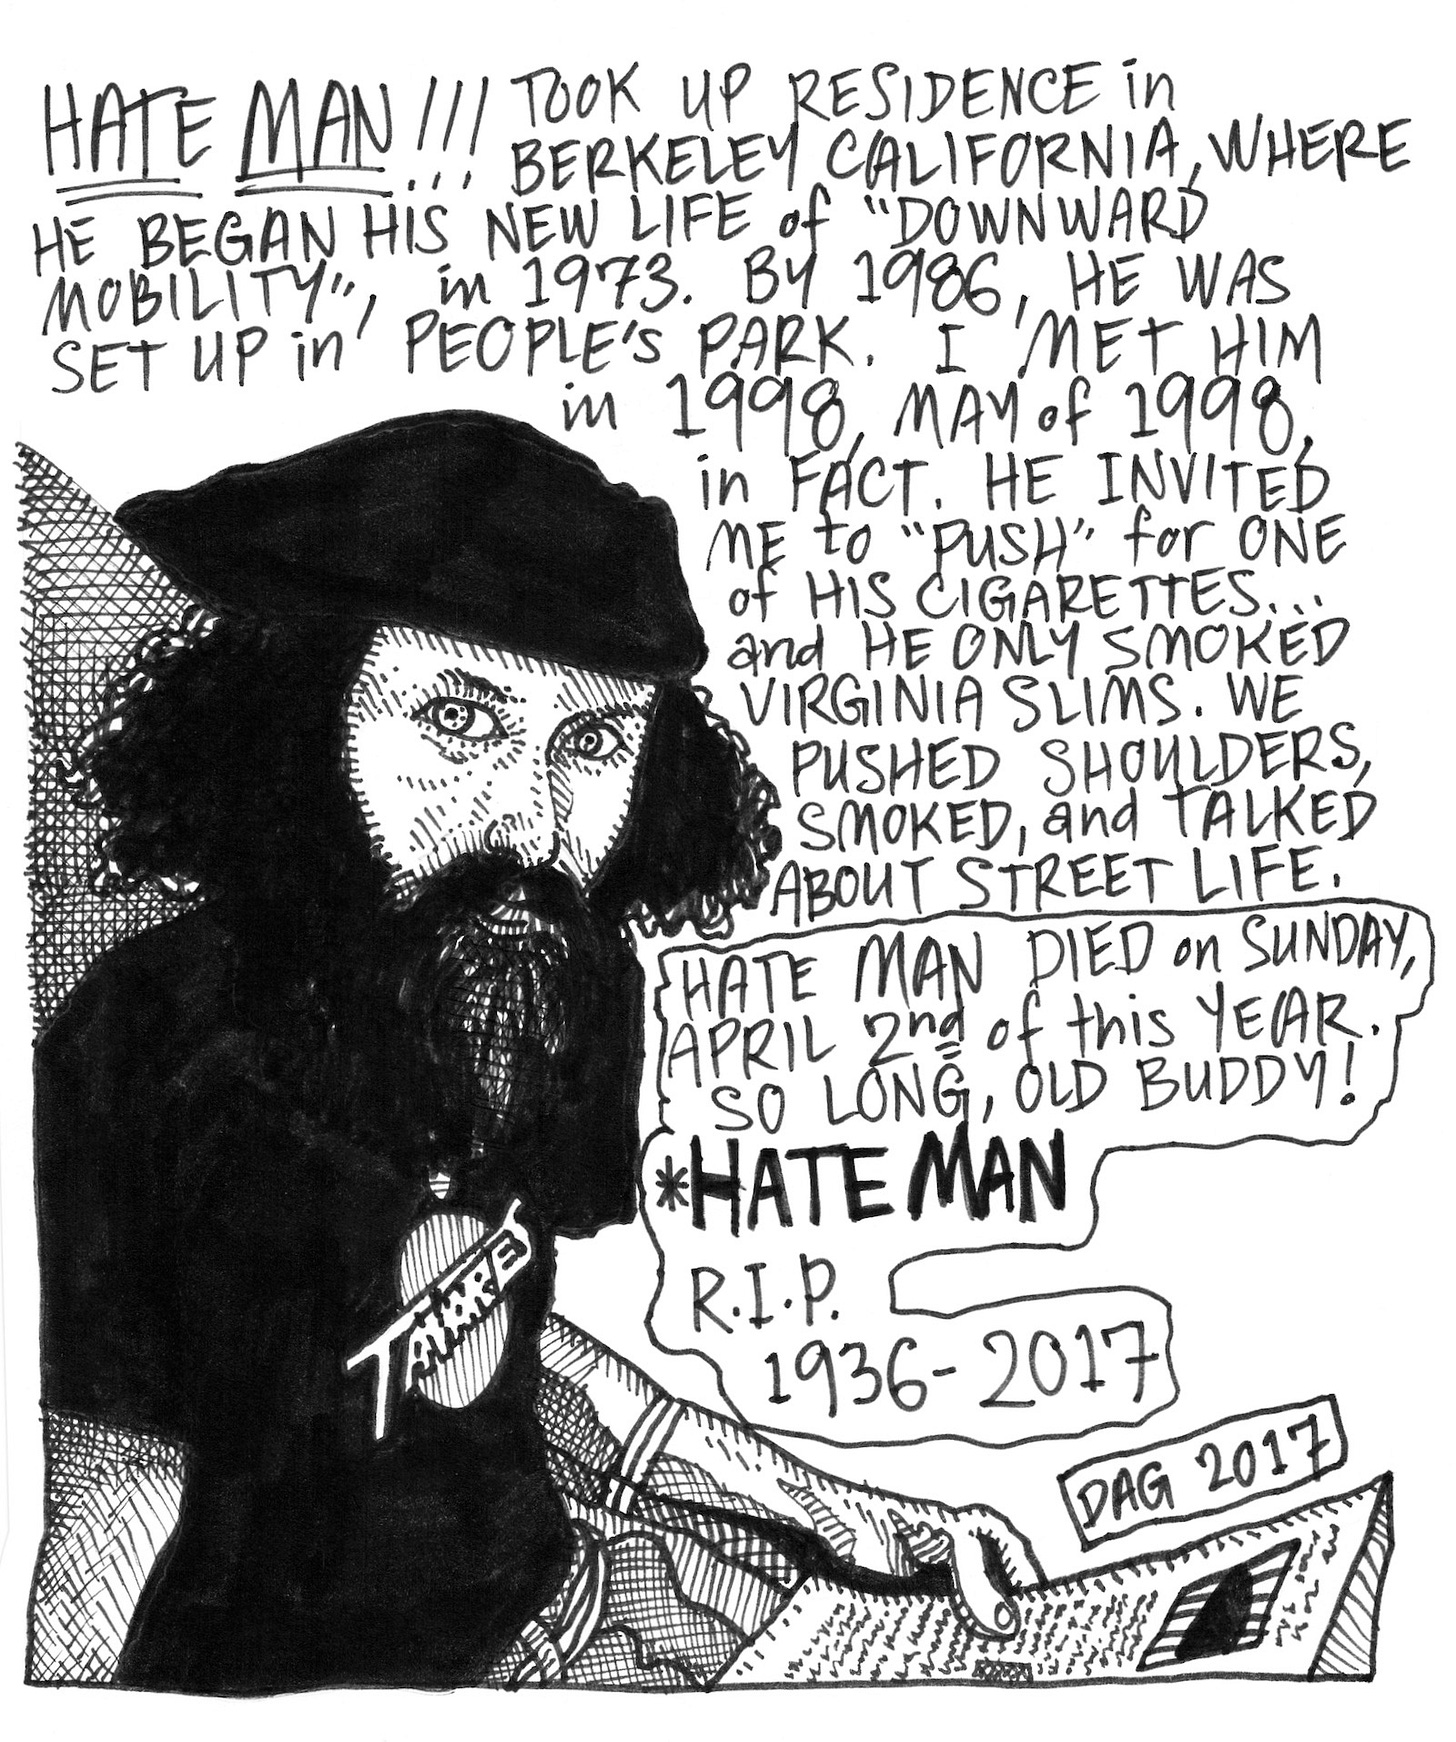 HATE MAN!!! TOOK UP RESIDENCE in
BERKELEY CALIFORNIA, WHERE
HE BEGAN HIS NEW LIFE of "DOWNWARD
MOBILITY", in 1973. BY 1986, HE WAS
SET UP in PEOPLE'S PARK. I MET HIM
in 1998, MAY of 1998,
in FACT. HE INVITED
ME to "PUSH" for ONE
of HIS CIGARETTES...
and HE ONLY SMOKED
VIRGINIA SLIMS. WE
PUSHED SHOULDERS,
SMOKED, and TALKED
ABOUT STREET LIFE.
HATE MAN DIED on SUNDAY,
APRIL 2nd of this YEAR.
SO LONG, OLD BUDDY!
*HATE MAN
R.I.P.
1936-2017
DAG 2017